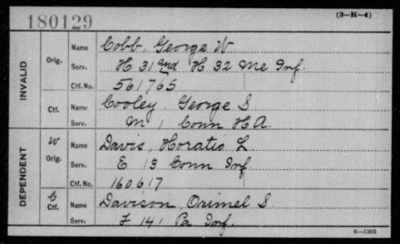 180129
(3-H-4)
INVALID
Orig.
Name Cobb, George W
Serv. H 31 2nd H 32 Me Inf.
Ctf. No. 561765
Ctf.
Name Cooley, George S.
Serv. M 1 Conn H A.
DEPENDENT
W
Orig.
Name Davis, Horatio L.
Serv. E 13 Conn Inf
Ctf. No. 160617
C
Ctf.
Name Davison, Orimel S
Serv. F 141 Pa Inf.